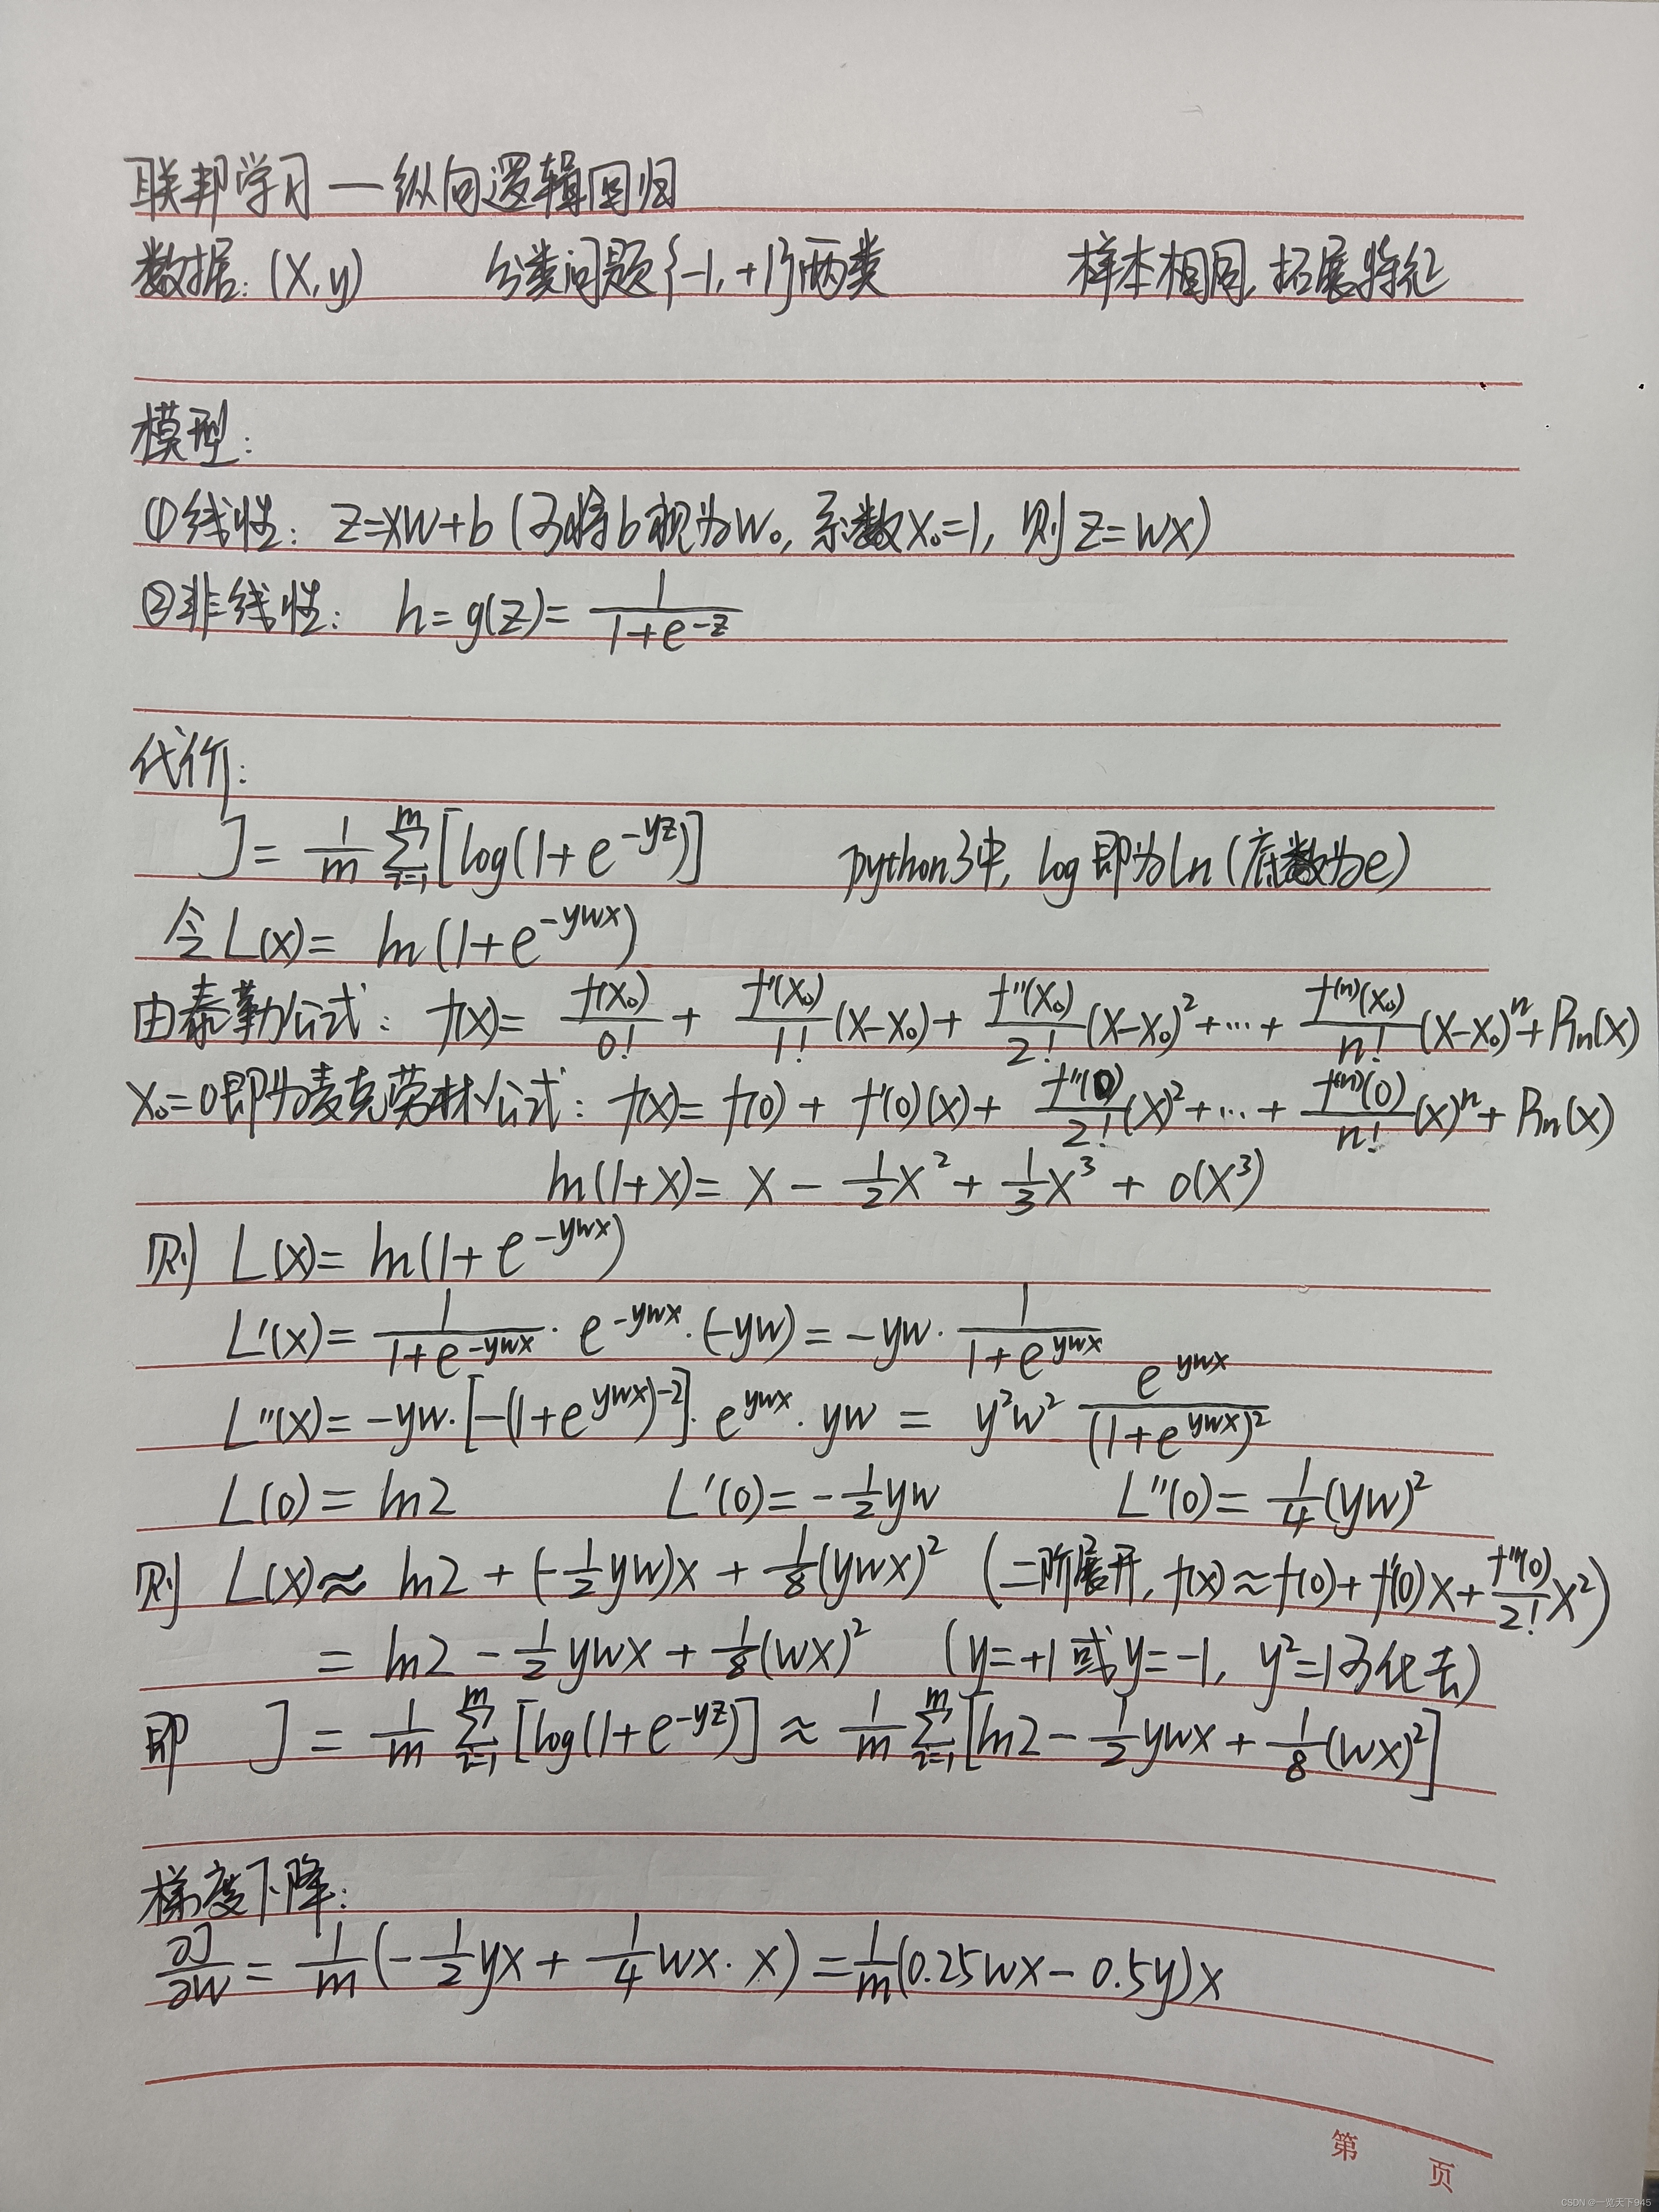 联邦学习—纵向逻辑回归
数据:(X,y) 分类问题{-1,+1}两类 样本相同,拓展特征
模型:
①线性: z=xw+b (可将b视为w₀,系数x₀=1, 则z=wx)
②非线性: h=g(z)= 1/(1+e^(-z))
代价:
J = 1/m Σ_{i=1}^m [log(1+e^(-yz))] python3中, log即为ln(底数为e)
令L(x)= ln(1+e^(-ywx))
由泰勒公式: f(x)= f(x₀)/0! + f'(x₀)/1! (x-x₀) + f''(x₀)/2! (x-x₀)² + ⋯ + f⁽ⁿ⁾(x₀)/n! (x-x₀)ⁿ + Rₙ(x)
x₀=0即为麦克劳林公式: f(x)= f(0) + f'(0)(x) + f''(0)/2! (x)² + ⋯ + f⁽ⁿ⁾(0)/n! (x)ⁿ + Rₙ(x)
ln(1+x)= x - 1/2 x² + 1/3 x³ + o(x³)
则 L(x)= ln(1+e^(-ywx))
L'(x)= 1/(1+e^(-ywx)) · e^(-ywx) · (-yw) = -yw · 1/(1+e^(ywx))
L''(x)= -yw·[-(1+e^(ywx))^(-2)]· e^(ywx) · yw = y²w² e^(ywx)/(1+e^(ywx))²
L(0) = ln2 L'(0)= -1/2 yw L''(0)= 1/4 (yw)²
则 L(x)≈ ln2 + (-1/2 yw)x + 1/8 (ywx)² (二阶展开, f(x)≈f(0)+f'(0)x+ f''(0)/2! x²)
= ln2 - 1/2 ywx + 1/8 (wx)² (y=+1或y=-1, y²=1可化去)
即 J = 1/m Σ_{i=1}^m [log(1+e^(-yz))] ≈ 1/m Σ_{i=1}^m [ln2 - 1/2 ywx + 1/8 (wx)²]
梯度下降:
∂J/∂w = 1/m (-1/2 yx + 1/4 wx·x) = 1/m (0.25wx - 0.5y)x
第 页
CSDN @一览天下945